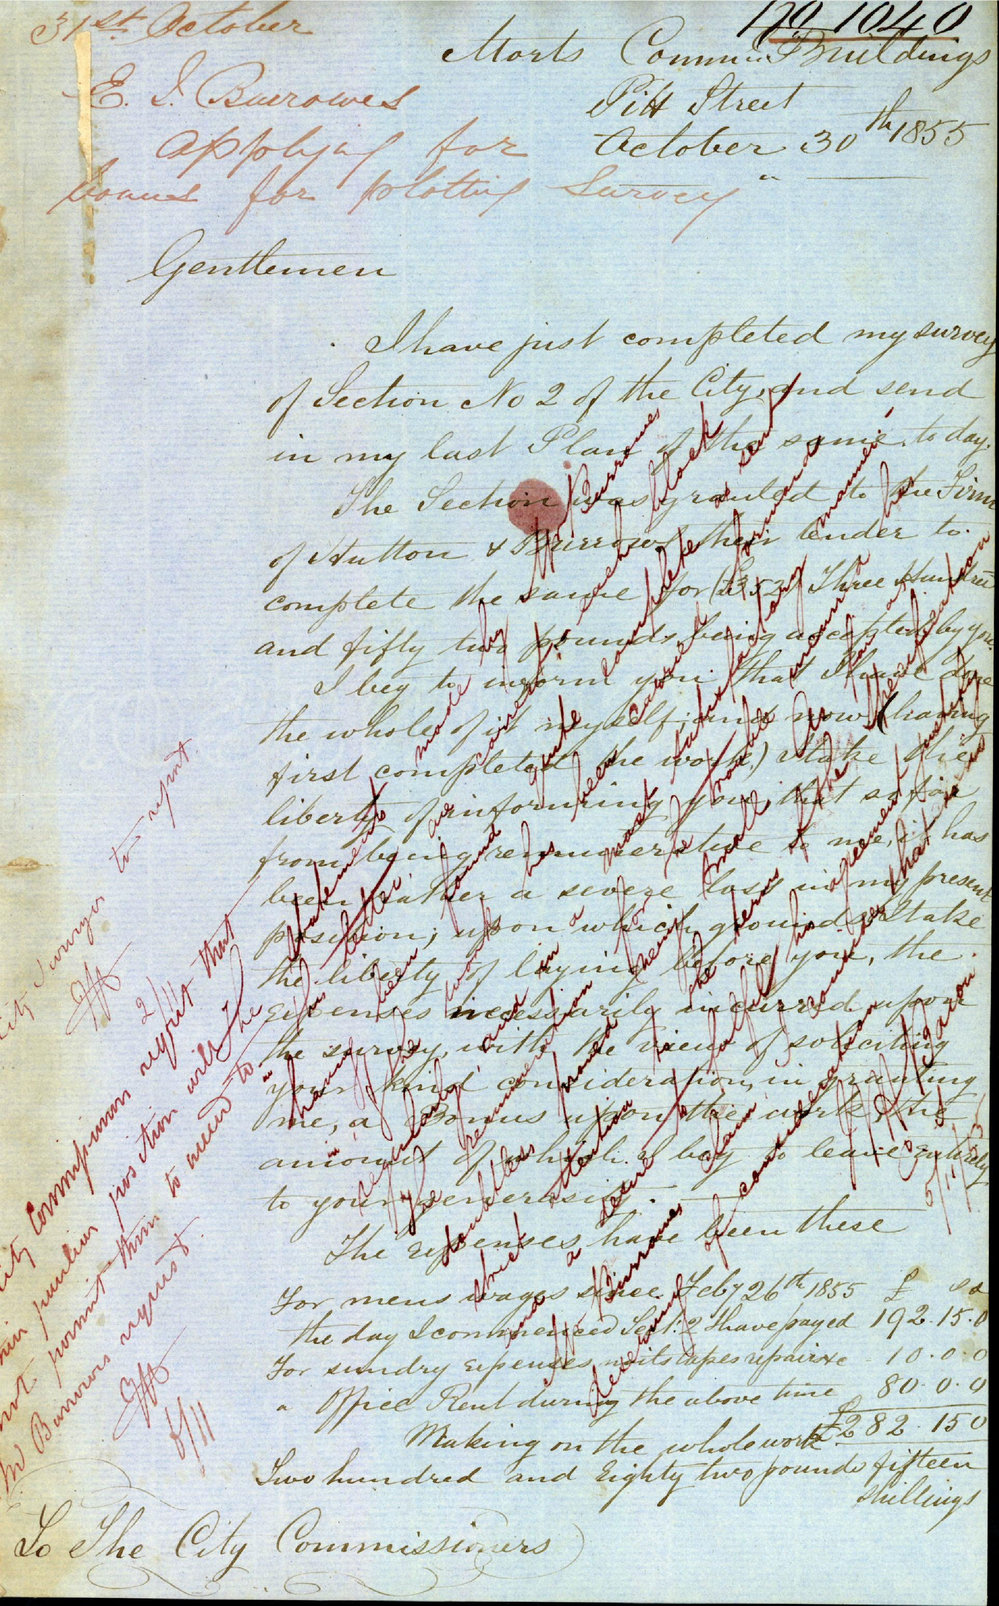 No 1040
31st October
E. J. Burrowes
applying for
bonus for plotting Survey"
Morts Commn. Buildings
Pitt Street
October 30th 1855
Gentlemen
I have just completed my survey
of Section No 2 of the City, and send
in my last Plan of the same to day.
The Section was granted to the Firm
of Hutton & Burrowes their tender to
complete the same for (£352) Three Hundred
and fifty two pounds being accepted by you.
I beg to inform you that I have done
the whole of it myself; and now (having
first completed the work,) I take the
liberty of informing you, that so far
from being remunerative to me, it has
been rather a severe loss in my present
position; upon which grounds I take
the liberty of laying before you, the
expenses necessarily incurred upon
the survey, with the view of soliciting
your kind consideration, in granting
me, a Bonus upon the work, the
amount of which I beg to leave entirely
to your generosity.
The expenses have been these
For mens wages since Feby 26th 1855 £ s d
the day I commenced Sect: 2 I have payed 192.15.0
For sundry expenses, tapes repairs &c 10.0.0
" Office Rent during the above time 80.0.0
Making on the whole work £282.15 0
Two hundred and Eighty two pounds fifteen
shillings
To The City Commissioners
City Surveyor to report
City Commissioners regret that
their peculiar position will
not permit them to accede to
Mr Burrows request.
6/11
2/11
The statements made by Mr Burrowes
in his letter, are correct; each block
having been found quite complete & sent
in, the work has been carried forward
regularly and in a most satisfactory manner
The remuneration
5/11/55